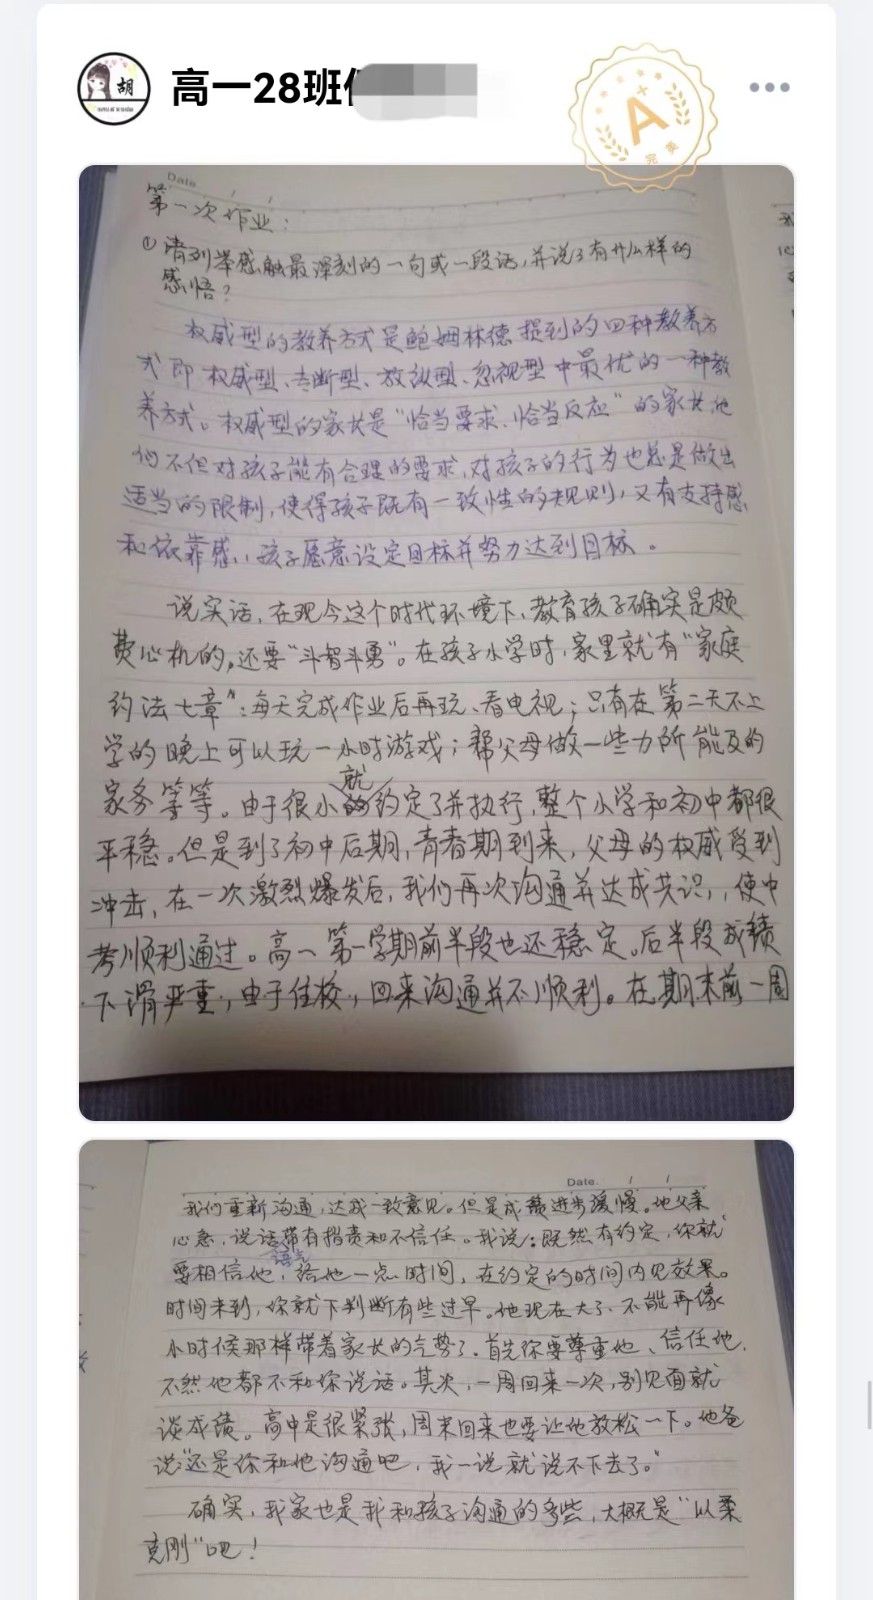 胡
高一28班
A+
完美
Date.
第一次作业:
①请列举感触最深刻的一句或一段话,并说了有什么样的
感悟?
权威型的教养方式是鲍姆林德提到的四种教养方
式即权威型、专断型、放纵型、忽视型中最优的一种教
养方式。权威型的家长是“恰当要求、恰当反应”的家长,他
们不但对孩子能有合理的要求,对孩子的行为也总是做出
适当的限制,使得孩子既有一致性的规则,又有支持感
和依靠感,孩子愿意设定目标并努力达到目标。
说实话,在现今这个时代环境下,教育孩子确实是颇
费心机的,还要“斗智斗勇”。在孩子小学时,家里就有“家庭
约法七章”:每天完成作业后再玩、看电视;只有在第二天不上
学的晚上可以玩一小时游戏;帮父母做一些力所能及的
家务等等。由于很小就约定了并执行,整个小学和初中都很
平稳。但是到了初中后期,青春期到来,父母的权威受到
冲击,在一次激烈爆发后,我们再次沟通并达成共识,使中
考顺利通过。高一第一学期前半段也还稳定。后半段成绩
下滑严重,由于住校,回来沟通并不顺利。在期末前一周
Date.
我们重新沟通,达成一致意见。但是成绩进步缓慢。他父亲
心急,说话语气带有指责和不信任。我说:既然有约定,你就
要相信他,给他一点时间,在约定的时间内见效果。
时间未到,你就下判断有些过早。他现在大了,不能再像
小时候那样带着家长的气势了。首先你要尊重他、信任他,
不然他都不和你说话。其次,一周回来一次,别见面就
谈成绩。高中是很紧张,周末回来也要让他放松一下。他爸
说“还是你和他沟通吧,我一说就说不下去了。”
确实,我家也是我和孩子沟通的多些,大概是“以柔
克刚”吧!